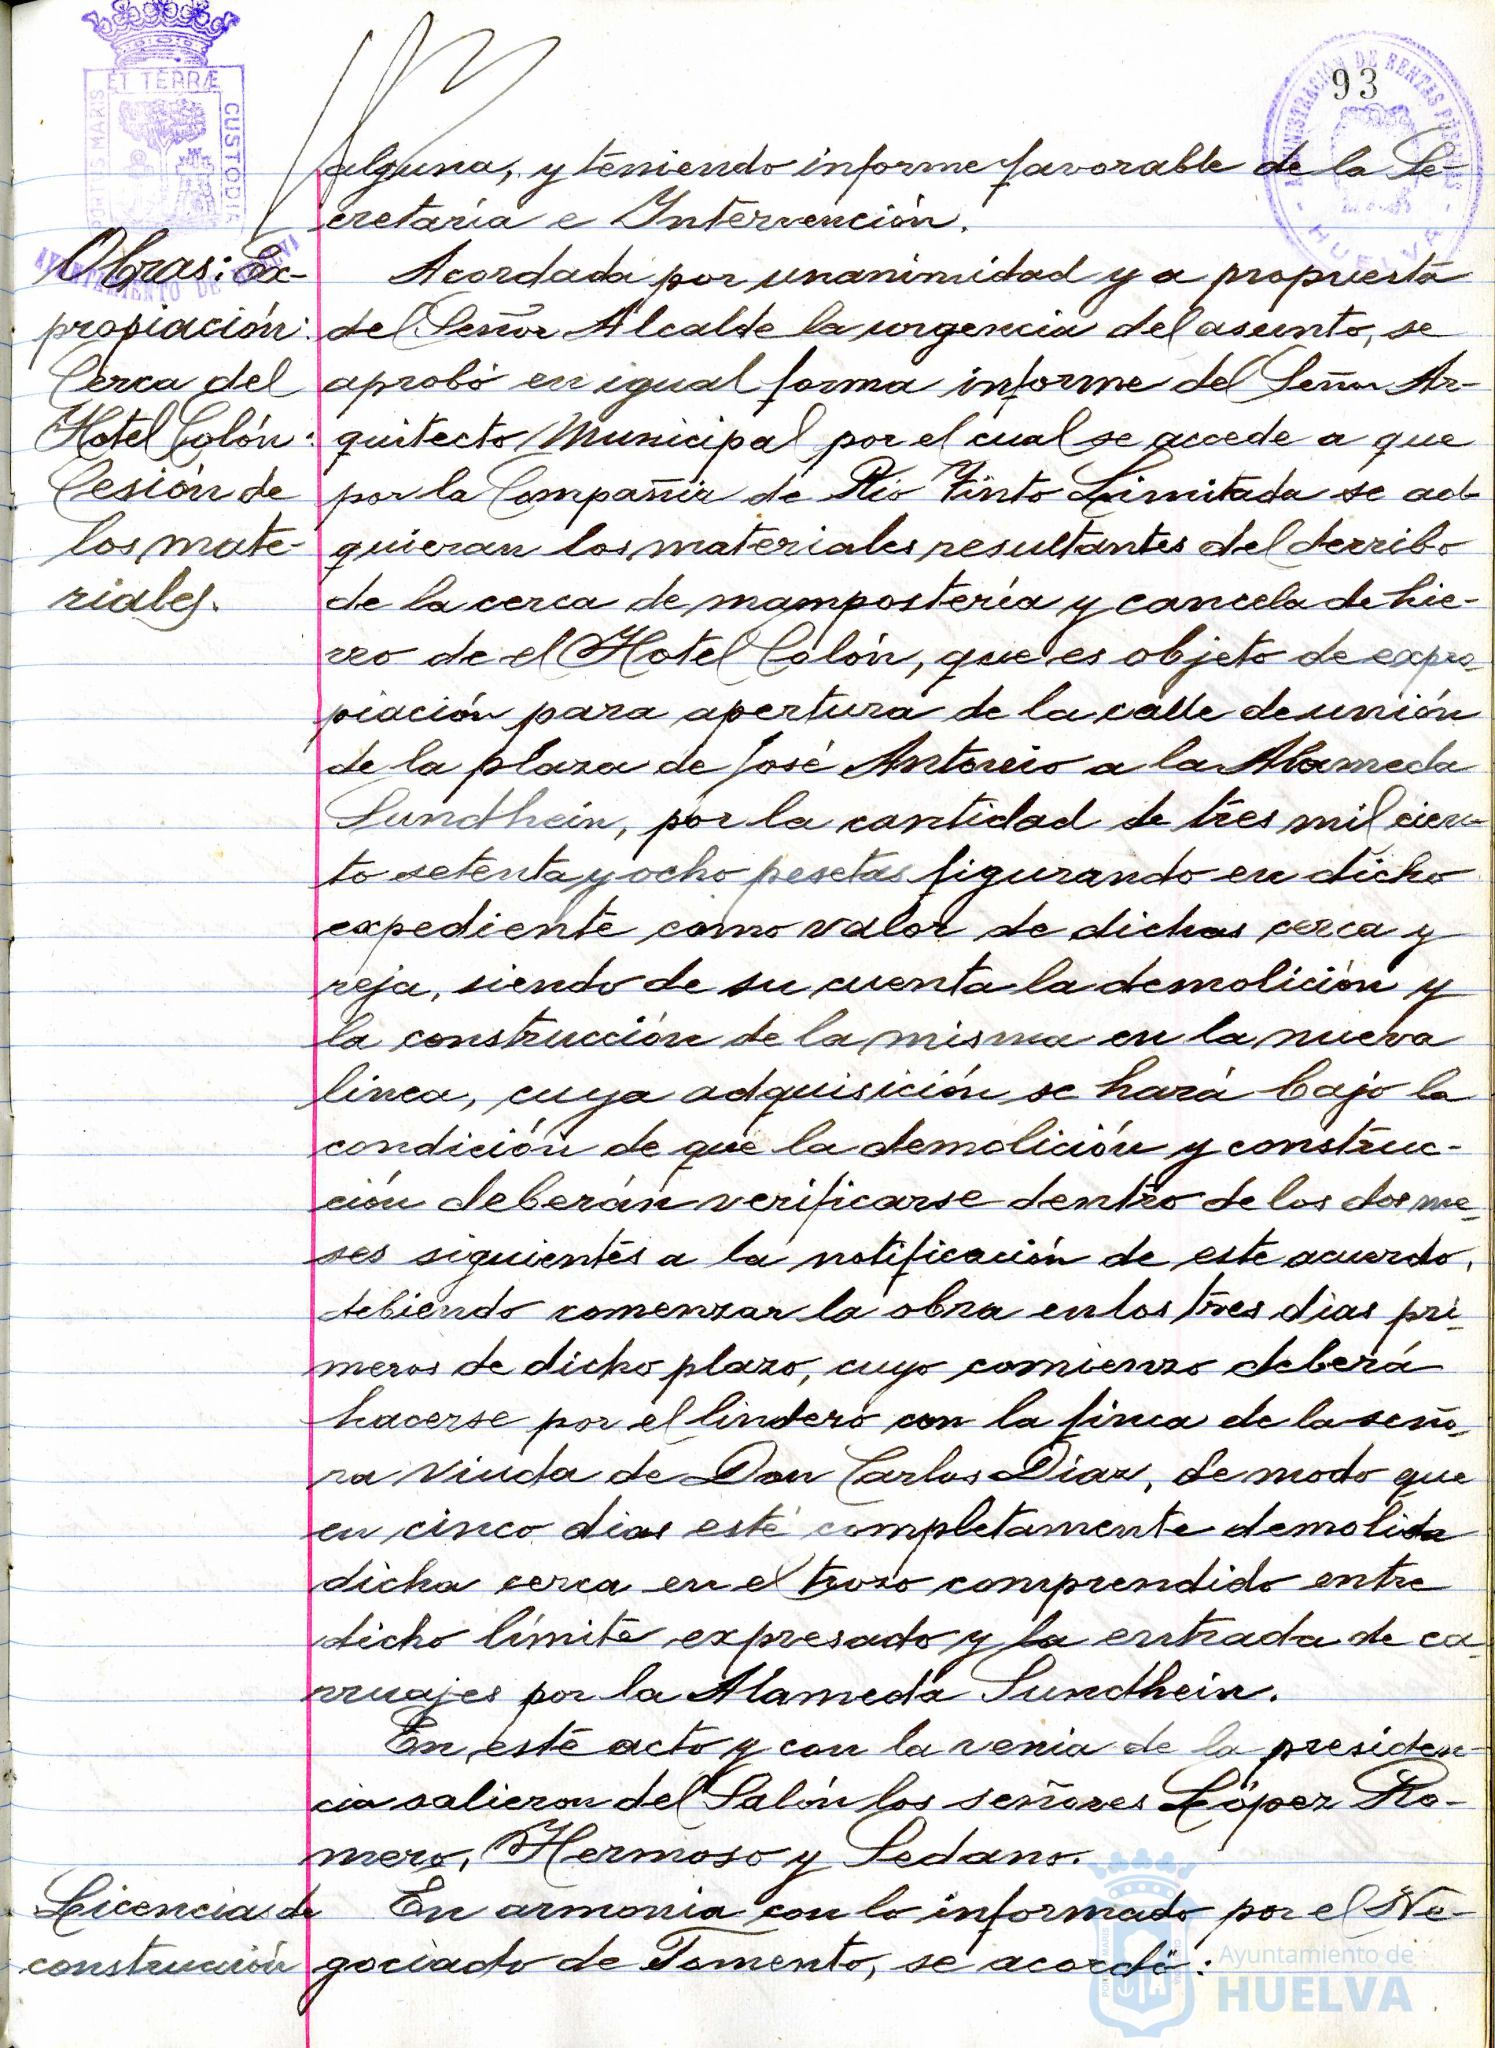 93
ET TERRÆ
PORTUS MARIS
CUSTODIA
AYUNTAMIENTO DE HUELVA
ADMINISTRACIÓN DE RENTAS PÚBLICAS
HUELVA
alguna, y teniendo informe favorable de la Se-
cretaría e Intervención.
Obras: Ex-
propiación:
Cerca del
Hotel Colón:
Cesión de
los mate-
riales.
Acordada por unanimidad y a propuesta
del Señor Alcalde la urgencia del asunto, se
aprobó en igual forma informe del Señor Ar-
quitecto Municipal por el cual se accede a que
por la Compañía de Río Tinto Limitada se ad-
quieran los materiales resultantes del derribo
de la cerca de mampostería y cancela de hie-
rro de el Hotel Colón, que es objeto de expro-
piación para apertura de la calle de unión
de la plaza de José Antonio a la Alameda
Sundhein, por la cantidad de tres mil cien-
to setenta y ocho pesetas figurando en dicho
expediente como valor de dichas cerca y
reja, siendo de su cuenta la demolición y
la construcción de la misma en la nueva
linea, cuya adquisición se hará bajo la
condición de que la demolición y construc-
ción deberán verificarse dentro de los dos me-
ses siguientes a la notificación de este acuerdo,
debiendo comenzar la obra en los tres dias pri-
meros de dicho plazo, cuyo comienzo deberá
hacerse por el lindero con la finca de la seño-
ra viuda de Don Carlos Díaz, de modo que
en cinco dias esté completamente demolida
dicha cerca en el trozo comprendido entre
dicho límite expresado y la entrada de ca-
rruajes por la Alameda Sundhein.
En este acto y con la venia de la presiden-
cia salieron del Salón los señores López Ro-
mero, Hermoso y Sedano.
Licencia de
construcción
En armonia con lo informado por el Ne-
gociado de Fomento, se acordó:
Ayuntamiento de
HUELVA